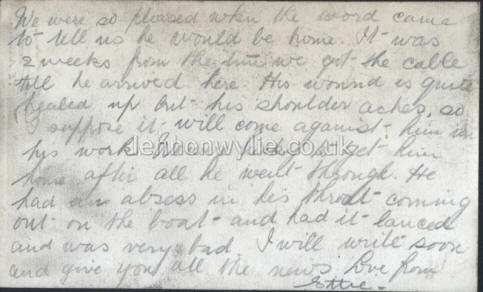 We were so pleased when the word came
to tell us he would be home. It was
2 weeks from the time we got the calle
till he arrived here. His wound is quite
healed up but his shoulder aches, so
I suppose it will come against him in
his work. But to get him
home after all he went through. He
had an absess in his throat coming
out on the boat and had it lanced
and was very bad. I will write soon
and give you all the news. Love from
Ettie -
lennonwylie.co.uk